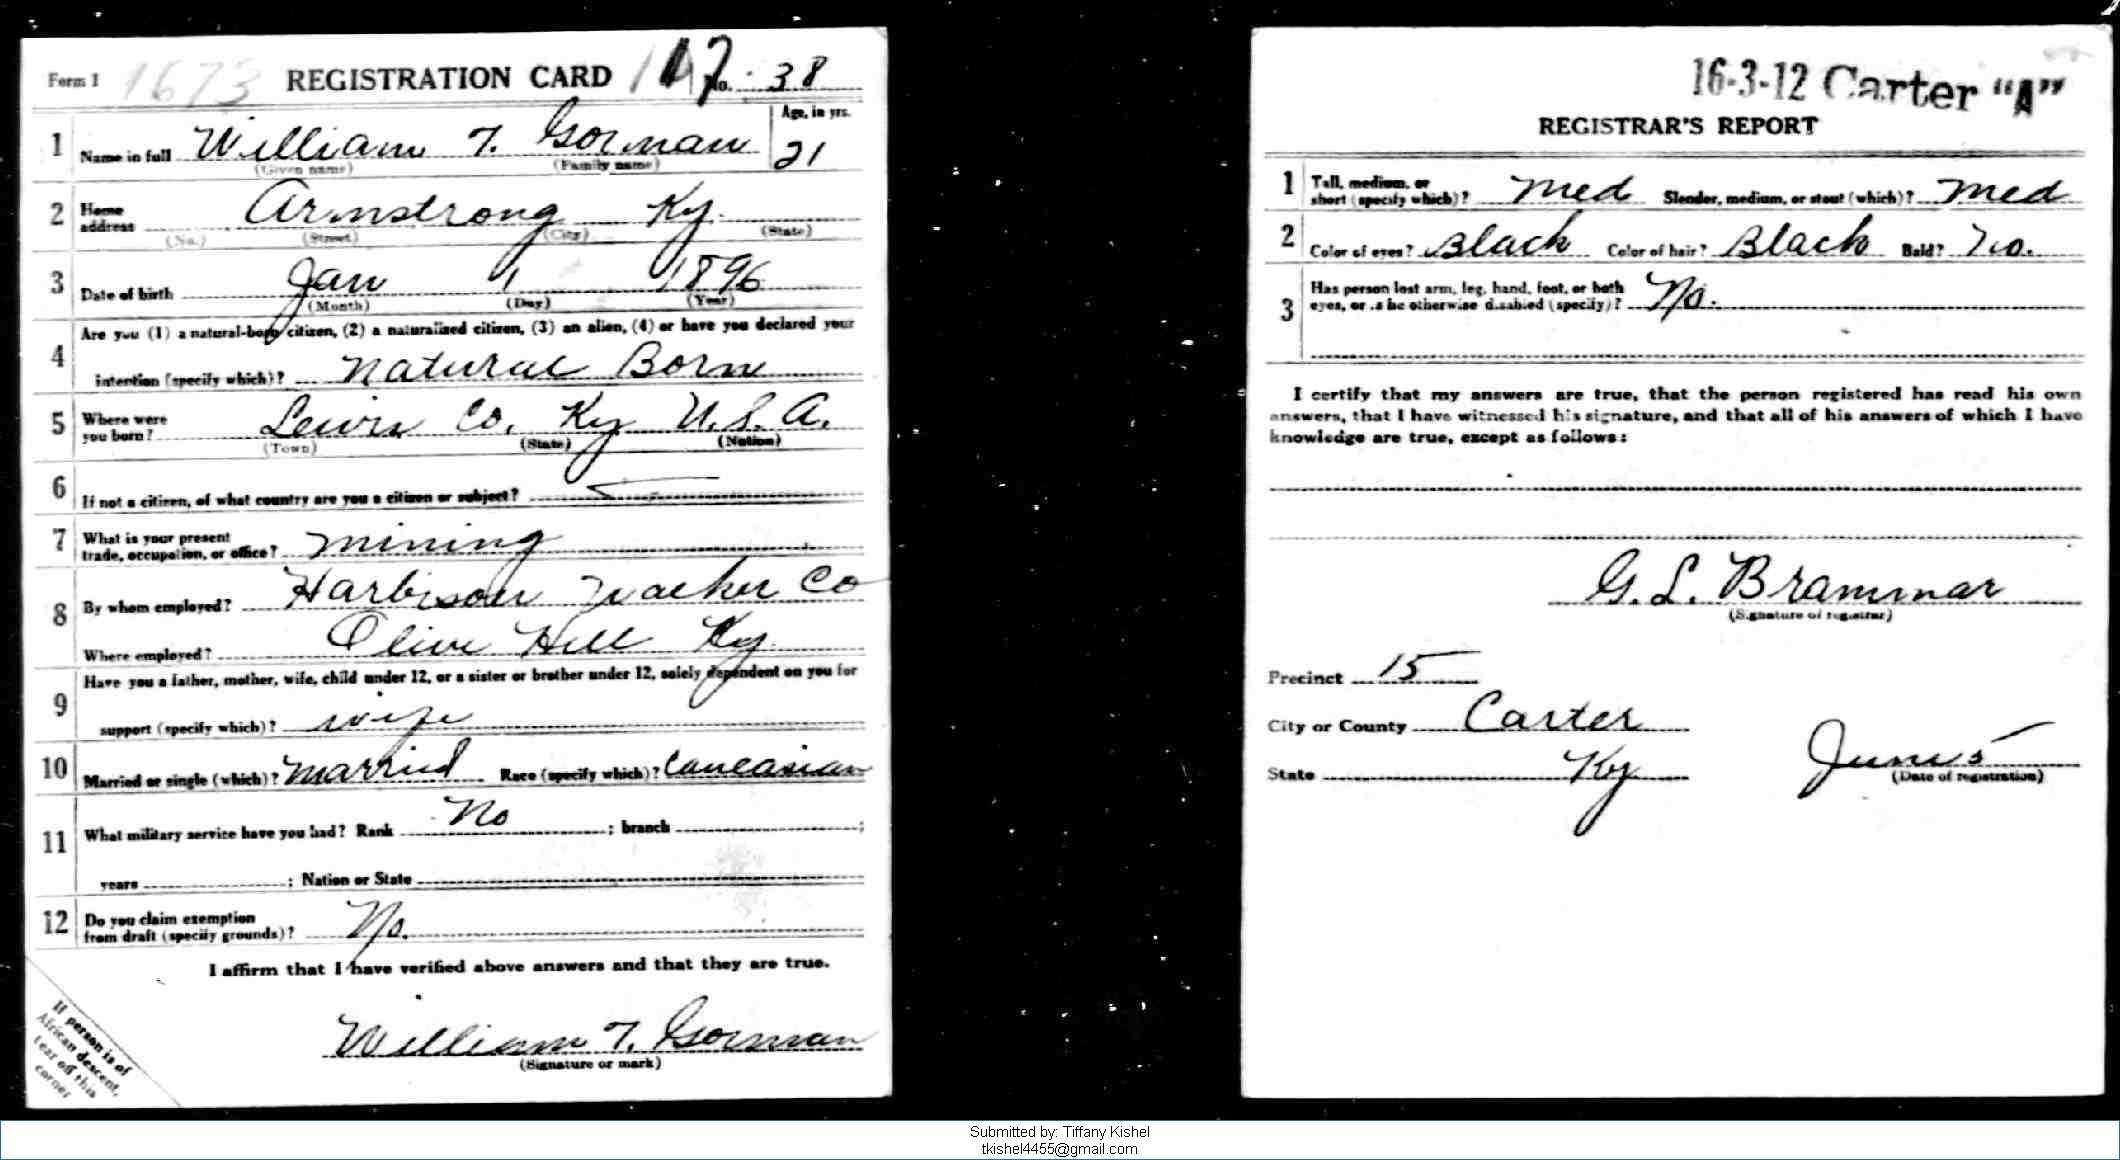 Form 1 1673 REGISTRATION CARD 117 No. 38
1 Name in full William T. Gorman Age, in yrs. 21
(Given name) (Family name)
2 Home address Armstrong Ky.
(No.) (Street) (City) (State)
3 Date of birth Jan 1 1896
(Month) (Day) (Year)
4 Are you (1) a natural-born citizen, (2) a naturalized citizen, (3) an alien, (4) or have you declared your
intention (specify which)? Natural Born
5 Where were you born? Lewis Co. Ky U.S.A.
(Town) (State) (Nation)
6 If not a citizen, of what country are you a citizen or subject?
7 What is your present
trade, occupation, or office? Mining
8 By whom employed? Harbison Walker Co
Where employed? Olive Hill Ky.
9 Have you a father, mother, wife, child under 12, or a sister or brother under 12, solely dependent on you for
support (specify which)? wife
10 Married or single (which)? Married Race (specify which)? Caucasian
11 What military service have you had? Rank No ; branch ;
years ; Nation or State
12 Do you claim exemption
from draft (specify grounds)? No.
I affirm that I have verified above answers and that they are true.
William T. Gorman
(Signature or mark)
If person is of
African descent,
tear off this
corner
16-3-12 Carter "A"
REGISTRAR'S REPORT
1 Tall, medium, or
short (specify which)? Med Slender, medium, or stout (which)? Med
2 Color of eyes? Black Color of hair? Black Bald? No.
3 Has person lost arm, leg, hand, foot, or both
eyes, or is he otherwise disabled (specify)? No.
I certify that my answers are true, that the person registered has read his own
answers, that I have witnessed his signature, and that all of his answers of which I have
knowledge are true, except as follows:
G. L. Brammar
(Signature of registrar)
Precinct 15
City or County Carter
State Ky June 5
(Date of registration)
Submitted by: Tiffany Kishel
tkishel4455@gmail.com